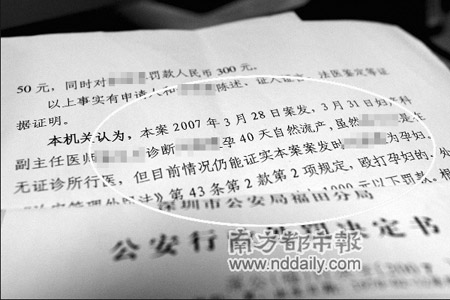 50 元，同时对 罚款人民币 300 元。
以上事实有申请人和 陈述，证人证言、法医鉴定等证
据证明。
本机关认为，本案 2007 年 3 月 28 日案发，3 月 31 日妇产科
副主任医师 诊断 孕 40 天自然流产，虽然 是在
无证诊所行医，但目前情况仍能证实本案案发时 为孕妇，
治安管理处罚法》第 43 条第 2 款第 2 项规定，殴打孕妇的，处
1000 元以下罚款。根
深圳市公安局福田分局
公安行 处罚决定书
南方都市報
www.nddaily.com